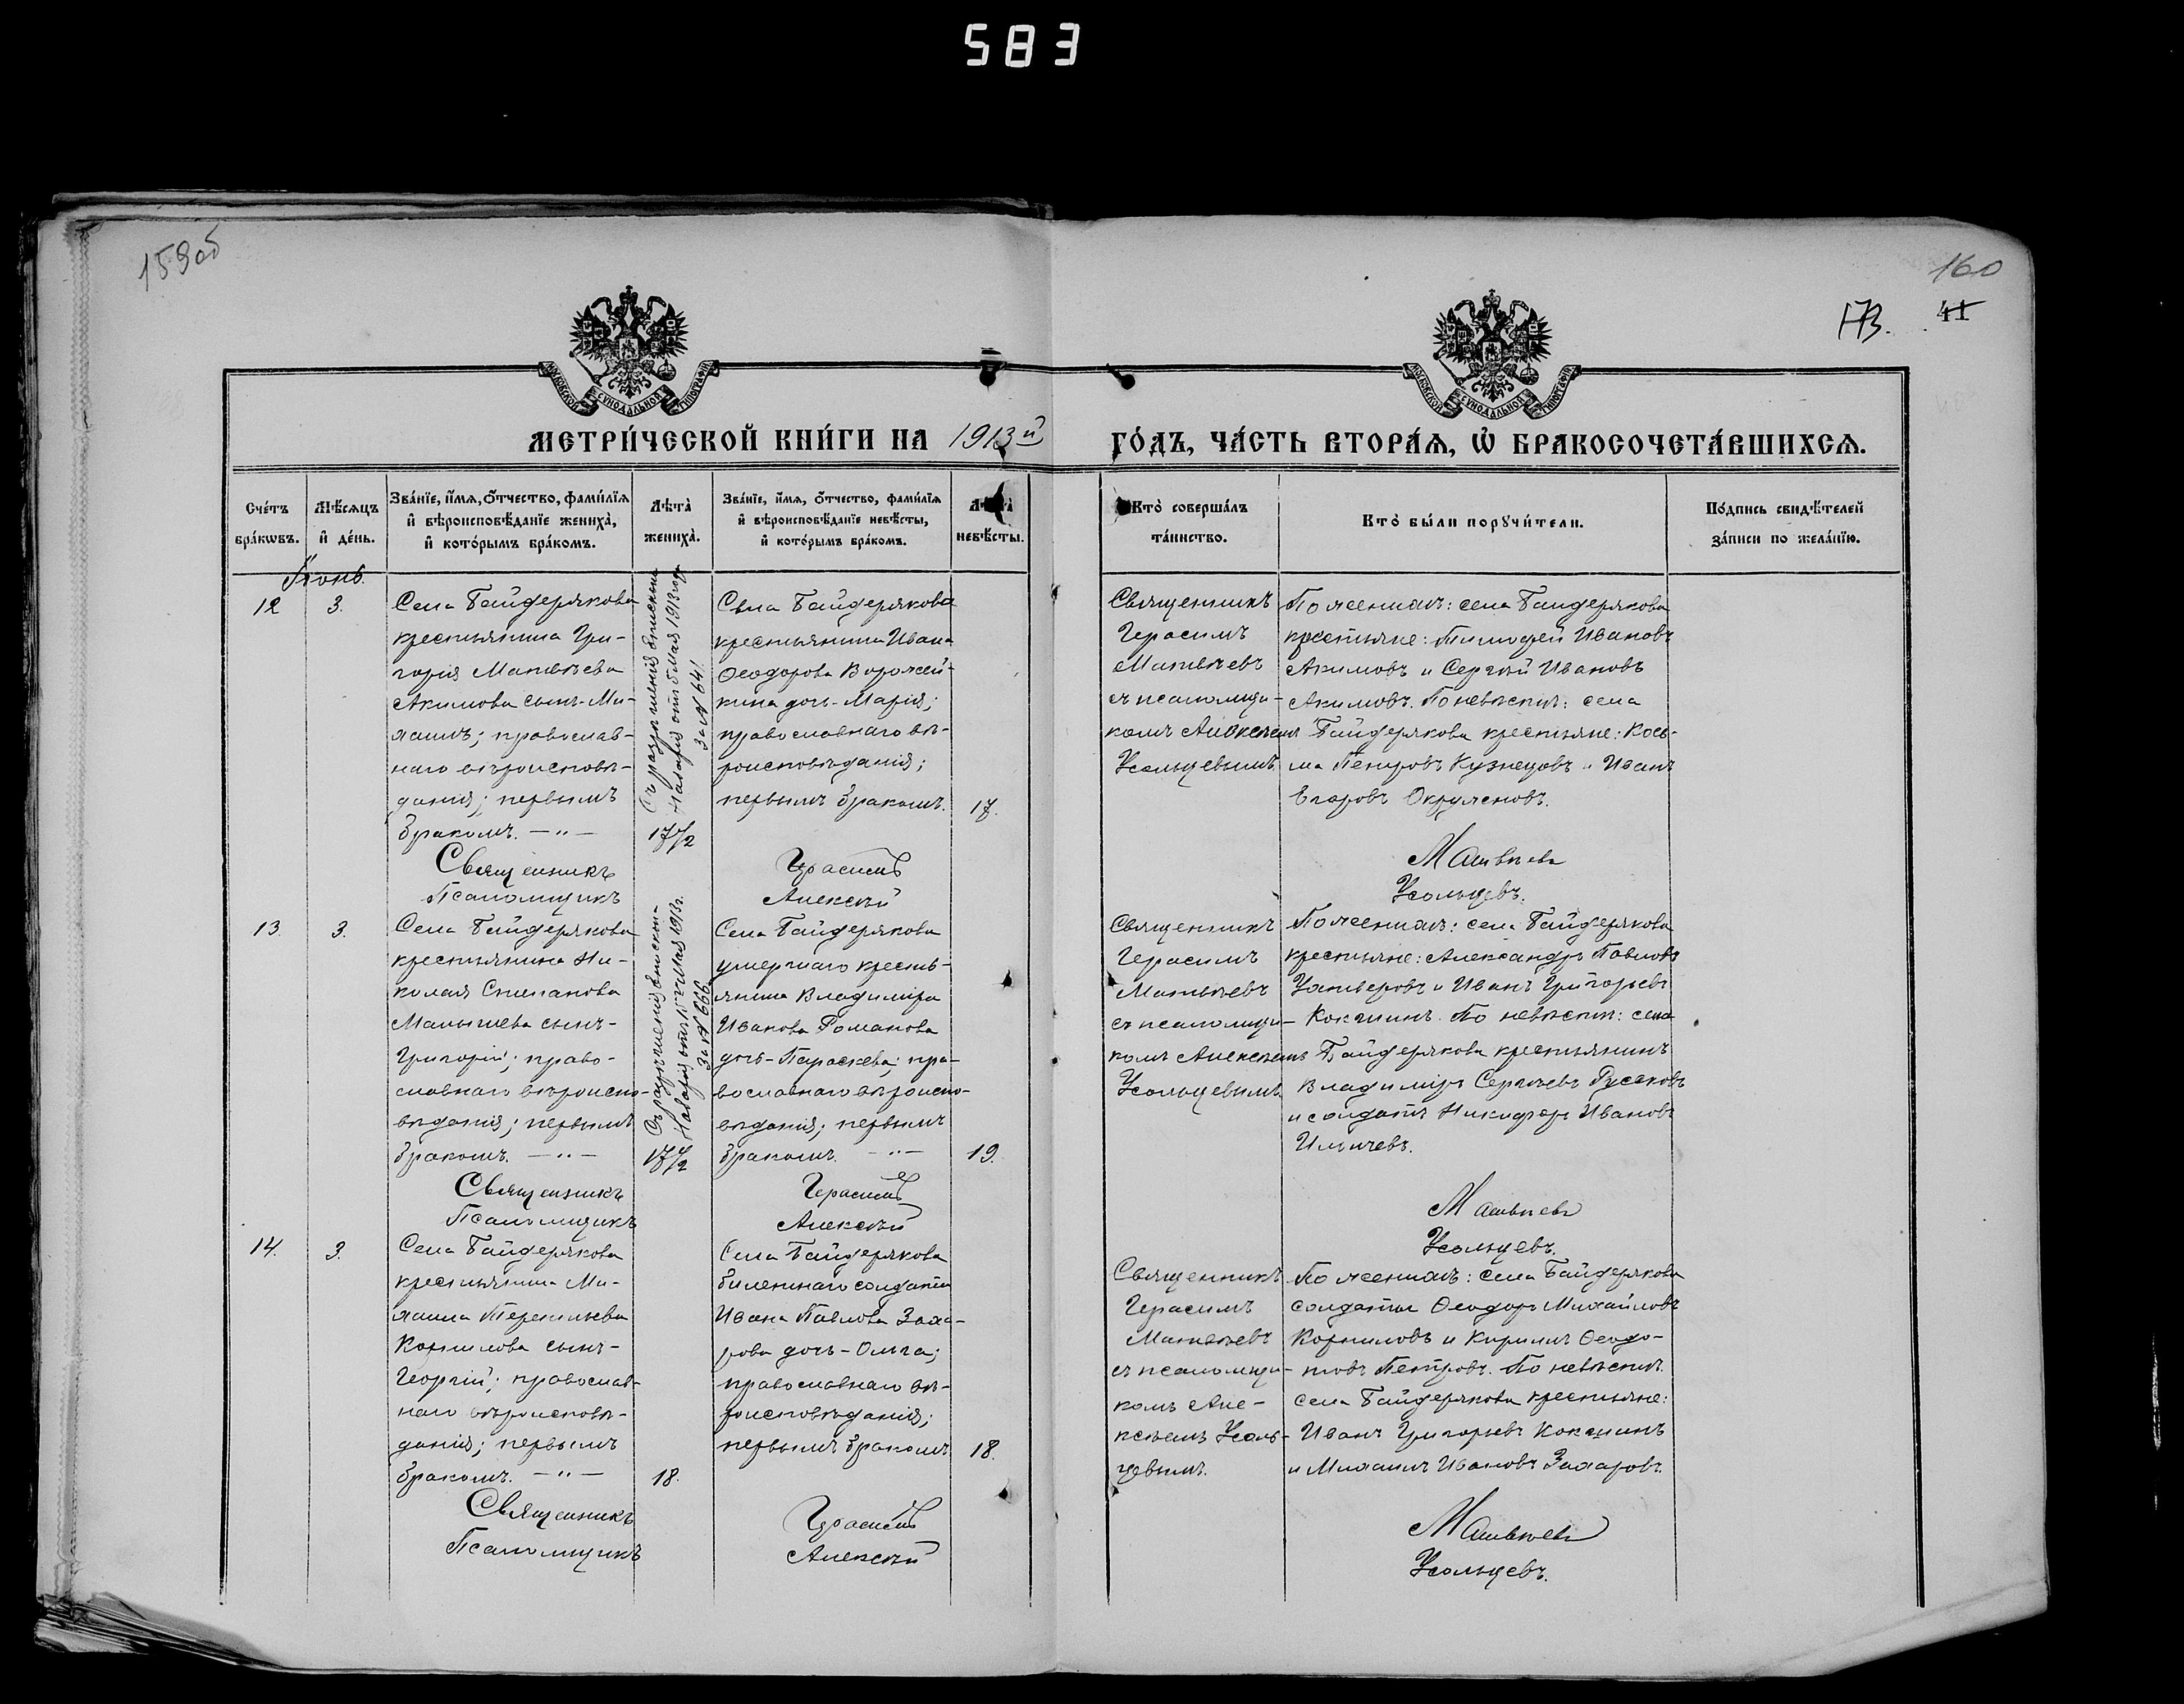 583
159об
160
173.
41
МОСКОВСКОЙ СѴНОДАЛЬНОЙ ТИПОГРАФІИ
МОСКОВСКОЙ СѴНОДАЛЬНОЙ ТИПОГРАФІИ
МЕТРИ́ЧЕСКОЙ КНИ́ГИ НА 1913й ГО́ДЪ, ЧА́СТЬ ВТОРА́Я, Ѽ БРАКОСОЧЕТА́ВШИХСЯ.
Сче́тъ бра́кѡвъ.
Мѣ́сяцъ и҆ де́нь.
Зва́нїе, и҆́мя, ѻ҆́тчество, фами́лїя
и҆ вѣроисповѣ́данїе жениха̀,
и҆ кото́рымъ бра́комъ.
Лѣ́та̀ жениха̀.
Зва́нїе, и҆́мя, ѻ҆́тчество, фами́лїя
и҆ вѣроисповѣ́данїе невѣ́сты,
и҆ кото́рымъ бра́комъ.
Лѣ́та̀ невѣ́сты.
Кто̀ соверша́лъ та́инство.
Кто̀ бы́ли порꙋчи́тели.
По́дпись свидѣ́телей
за́писи по жела́нїю.
Іюнь.
12
3.
Села Байдерякова
крестьянина Гри-
горія Матвѣева
Акимова сынъ-Ми-
хаилъ; православ-
наго вѣроисповѣ-
данія; первымъ
бракомъ. — „ —
Съ разрѣшенія Епископа
Назарія отъ 6 Мая 1913 года
За № 641.
17 1/2
Села Байдерякова
крестьянина Ивана
Ѳеодорова Ворожей-
кина дочь-Марія;
православнаго вѣ-
роисповѣданія;
первымъ бракомъ.
17.
Священникъ
Герасимъ
Матвѣевъ
съ псаломщи-
комъ Алексѣемъ
Усольцевымъ
По женихѣ: села Байдерякова
крестьяне: Тимофей Ивановъ
Акимовъ и Сергѣй Ивановъ
Акимовъ. По невѣстѣ: села
Байдерякова крестьяне: Кось-
ма Петровъ Кузнецовъ и Иванъ
Егоровъ Окружновъ.
Священникъ Герасимъ Матвѣевъ
Псаломщикъ Алексѣй Усольцевъ.
13.
3.
Села Байдерякова
крестьянина Ни-
колая Степанова
Малышева сынъ-
Григорій; право-
славнаго вѣроиспо-
вѣданія; первымъ
бракомъ. — „ —
Съ разрѣшенія Епископа
Назарія отъ Мая 1913 г.
За № 666.
17 1/2
Села Байдерякова
умершаго кресть-
янина Владиміра
Иванова Романова
дочь-Параскева; пра-
вославнаго вѣроиспо-
вѣданія; первымъ
бракомъ. — „ —
19.
Священникъ
Герасимъ
Матвѣевъ
съ псаломщи-
комъ Алексѣемъ
Усольцевымъ
По женихѣ: села Байдерякова
крестьяне: Александръ Павловъ
и Иванъ Григорьевъ
Кокшинъ. По невѣстѣ: села
Байдерякова крестьянинъ
Владиміръ Сергѣевъ Русаковъ
и солдатъ Никифоръ Ивановъ
Ильичевъ.
Священникъ Герасимъ Матвѣевъ
Псаломщикъ Алексѣй Усольцевъ.
14.
3.
Села Байдерякова
крестьянина Ми-
хаила Терентьева
Корнилова сынъ-
Георгій; православ-
наго вѣроисповѣ-
данія; первымъ
бракомъ. — „ —
18.
Села Байдерякова
билетнаго солдата
Ивана Павлова Заха-
рова дочь-Ольга;
православнаго вѣ-
роисповѣданія;
первымъ бракомъ
18.
Священникъ
Герасимъ
Матвѣевъ
съ псаломщи-
комъ Але-
ксѣемъ Усоль-
цевымъ.
По женихѣ: села Байдерякова
солдаты Ѳеодоръ Михайловъ
Корниловъ и Кириллъ Ѳеодо-
товъ Петровъ. По невѣстѣ:
села Байдерякова крестьяне:
Иванъ Григорьевъ Кокшинъ
и Михаилъ Ивановъ Захаровъ.
Священникъ Герасимъ Матвѣевъ
Псаломщикъ Алексѣй Усольцевъ.